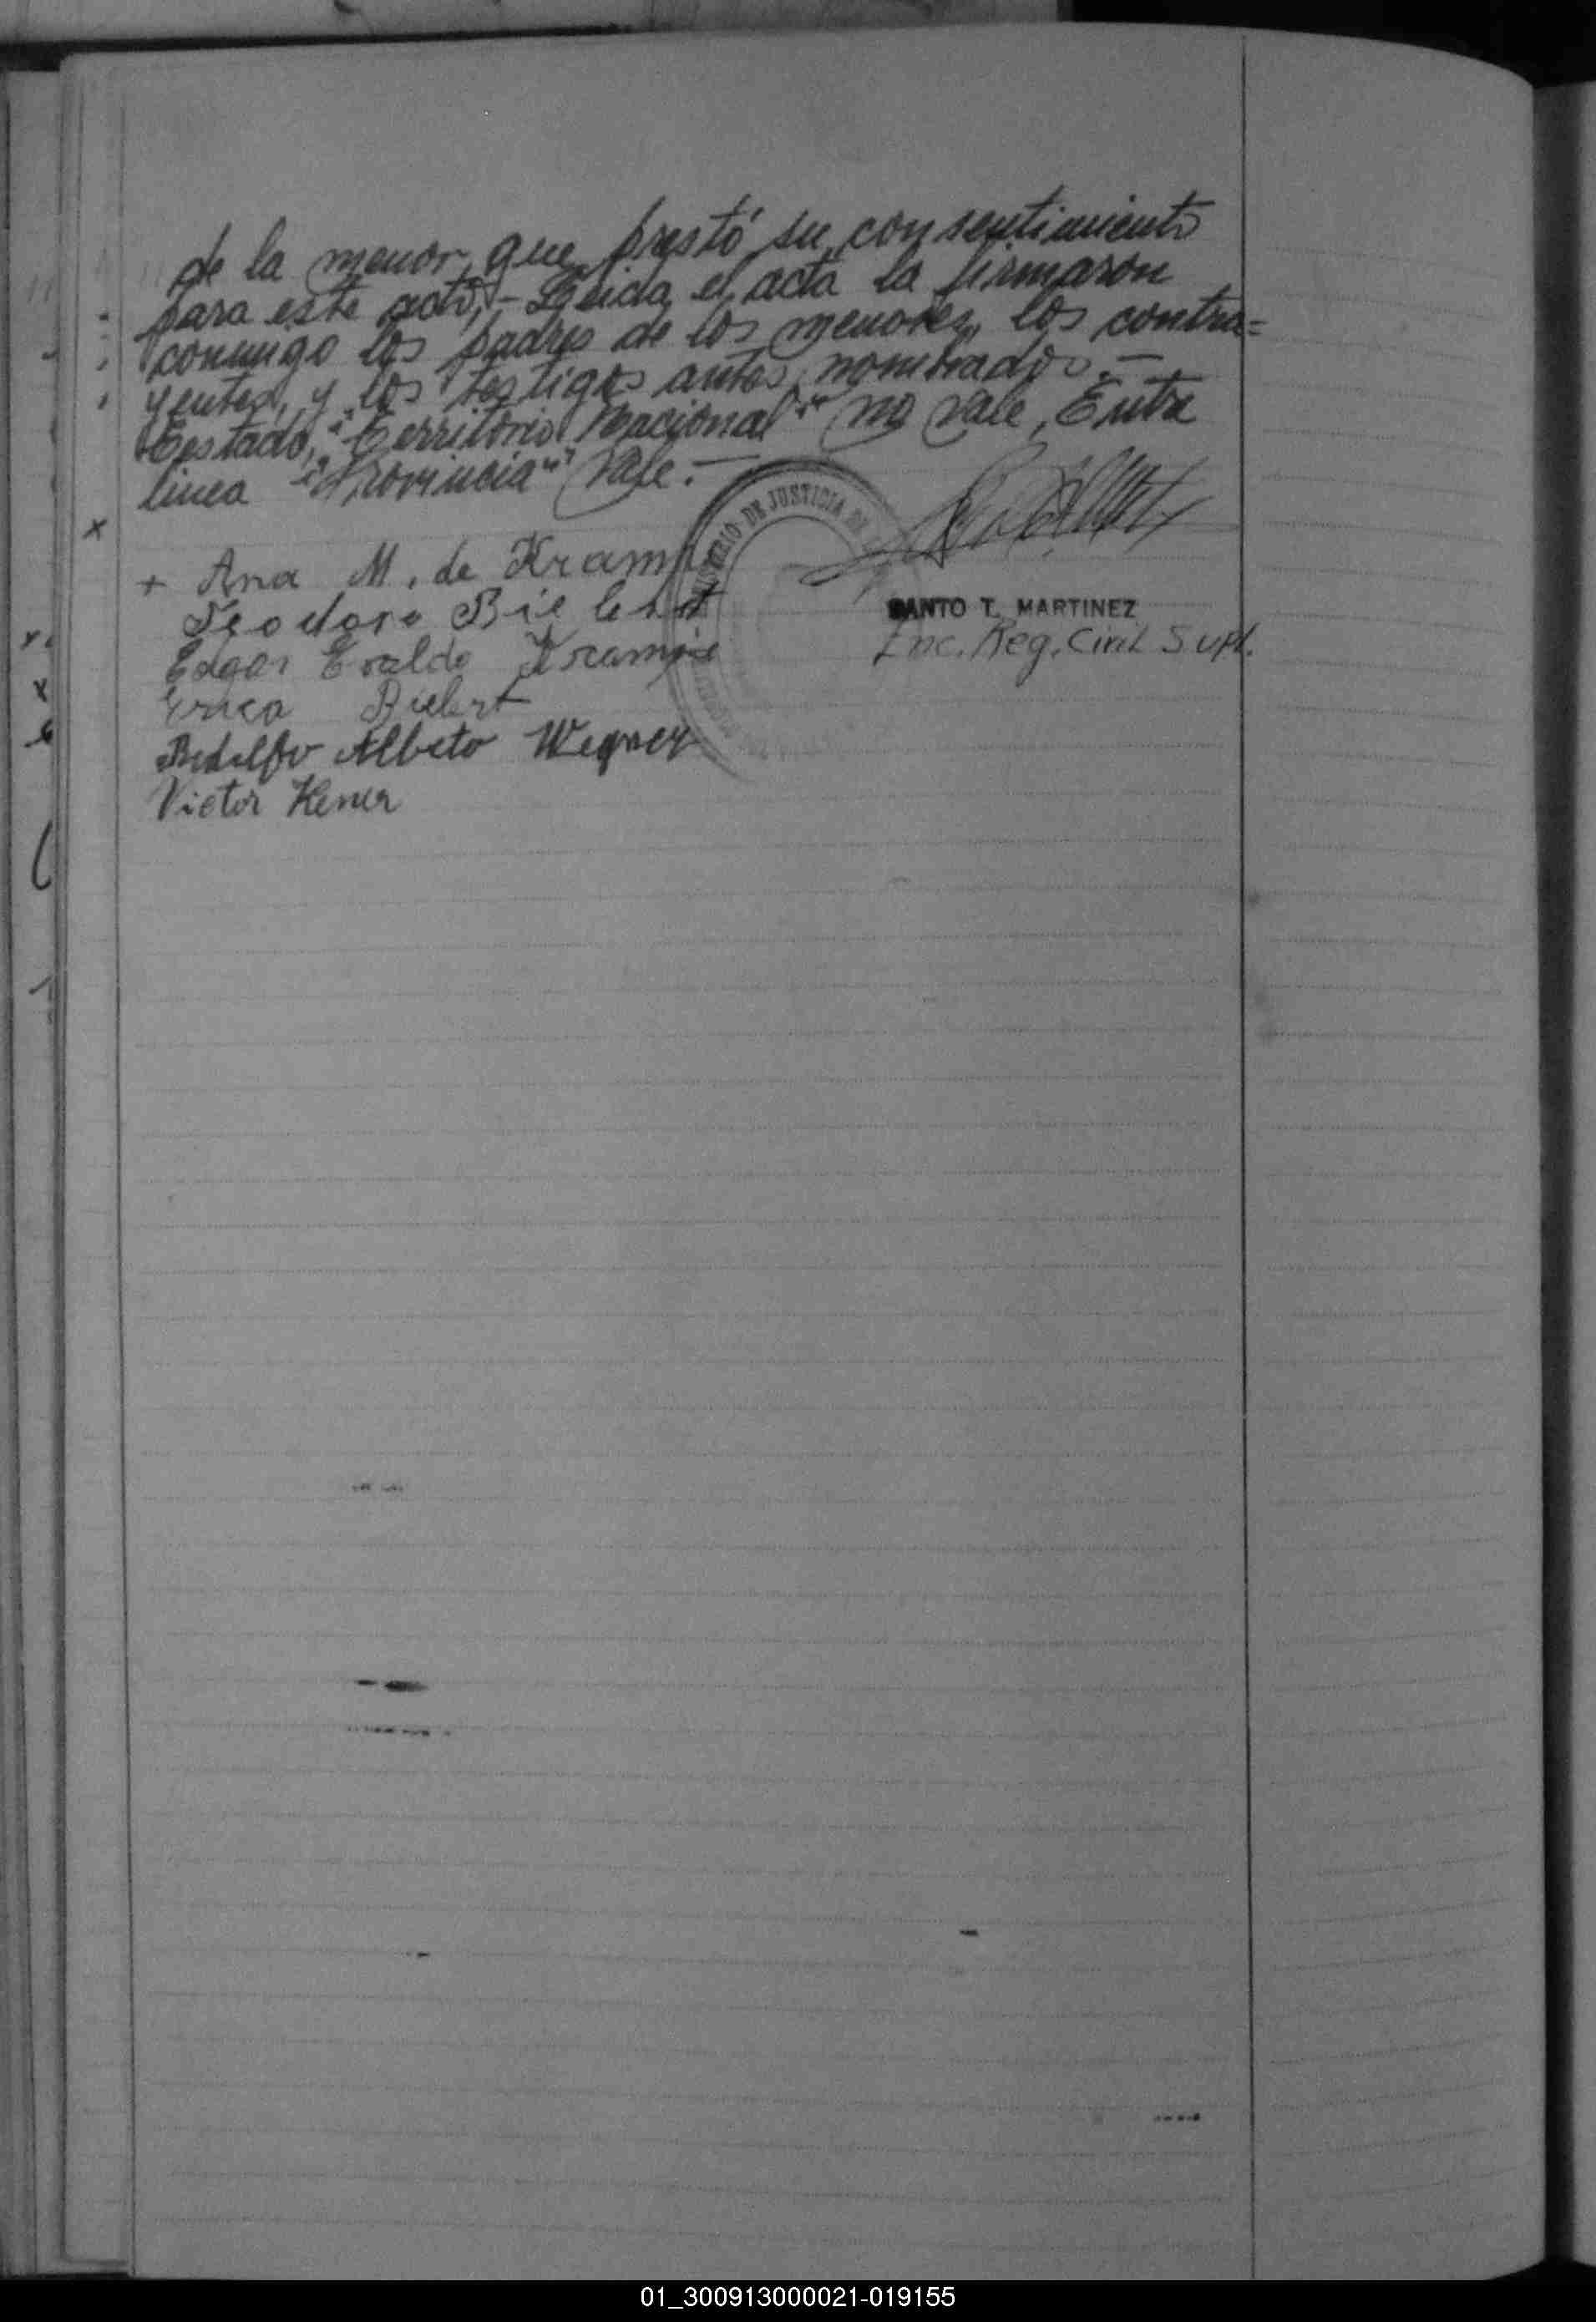 de la menor, que prestó su consentimiento
para este acto,- Leida el acta la firmaron
conmigo los padres de los menores, los contra=
yentes, y los testigos antes nombrados.-
Testado, "Territorio Nacional" no vale, Entre
linea "Provincia" Vale.-
MINISTERIO DE JUSTICIA DE
+ Ana M. de Kramp
Teodoro Bielert
SANTO T. MARTINEZ
Enc. Reg. Civil Supl.
Edgar Evaldo
Erica Bielert
Rodolfo Alberto Wegner
Victor
01_300913000021-019155